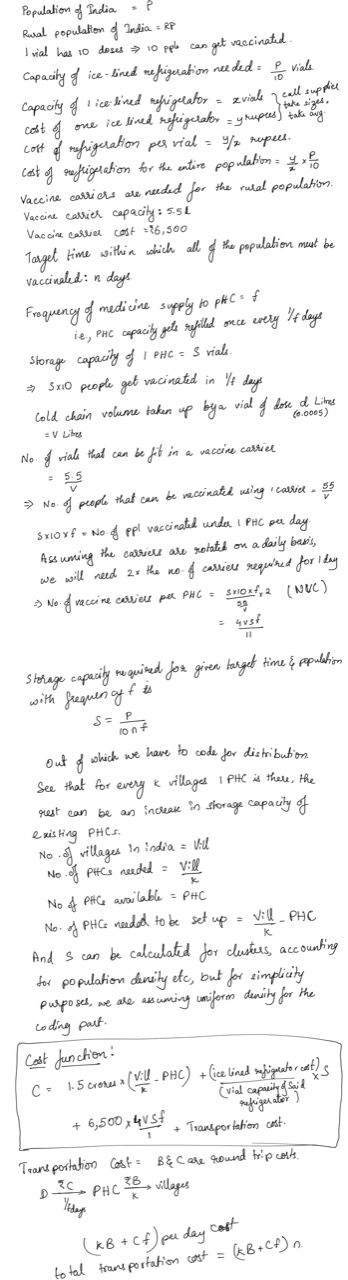 Population of India = P
Rural population of India = RP
1 vial has 10 doses ⇒ 10 ppl can get vaccinated.
Capacity of ice-lined refrigeration needed = P/10 vials.
Capacity of 1 ice-lined refrigerator = x vials } call supplier
cost of one ice lined refrigerator = y rupees } take sizes, take avg.
Cost of refrigeration per vial = y/x rupees.
Cost of refrigeration for the entire population = y/x × P/10
Vaccine carriers are needed for the rural population.
Vaccine carrier capacity: 5.5l
Vaccine carrier cost = ₹6,500
Target time within which all of the population must be
vaccinated: n days
Frequency of medicine supply to PHC = f
i.e., PHC capacity gets refilled once every 1/f days
Storage capacity of 1 PHC = S vials.
⇒ S×10 people get vacinated in 1/f days
Cold chain volume taken up by a vial of dose d Litres
(0.0005)
= V Litres
No. of vials that can be fit in a vaccine carrier
= 5.5/V
⇒ No. of people that can be vaccinated using 1 carrier = 55/V
S×10×f = No of ppl vaccinated under 1 PHC per day.
Assuming the carriers are rotated on a daily basis,
we will need 2x the no. of carriers required for 1 day
⇒ No. of vaccine carriers per PHC = S×10×f×2 / (55/V) (NVC)
= 4VSf/11
Storage capacity required for given target time & population
with frequency f is
S = P/10nf
Out of which we have to code for distribution.
See that for every k villages 1 PHC is there, the
rest can be an increase in storage capacity of
existing PHCs.
No. of villages in india = Vill
No. of PHCs needed = Vill/k
No of PHCs available = PHC
No. of PHCs needed to be set up = Vill/k - PHC
And S can be calculated for clusters, accounting
for population density etc, but for simplicity
purposes, we are assuming uniform density for the
coding part.
Cost function:
C = 1.5 crores × (Vill/k - PHC) + (ice lined refrigerator cost)/(vial capacity of said refrigerator) × S
+ 6,500 × 4VSf/1 + Transportation cost.
Transportation Cost = B & C are round trip costs.
D ₹C → 1/f days PHC ₹B → k villages
(kB + Cf) per day cost
total transportation cost = (kB+Cf) n.